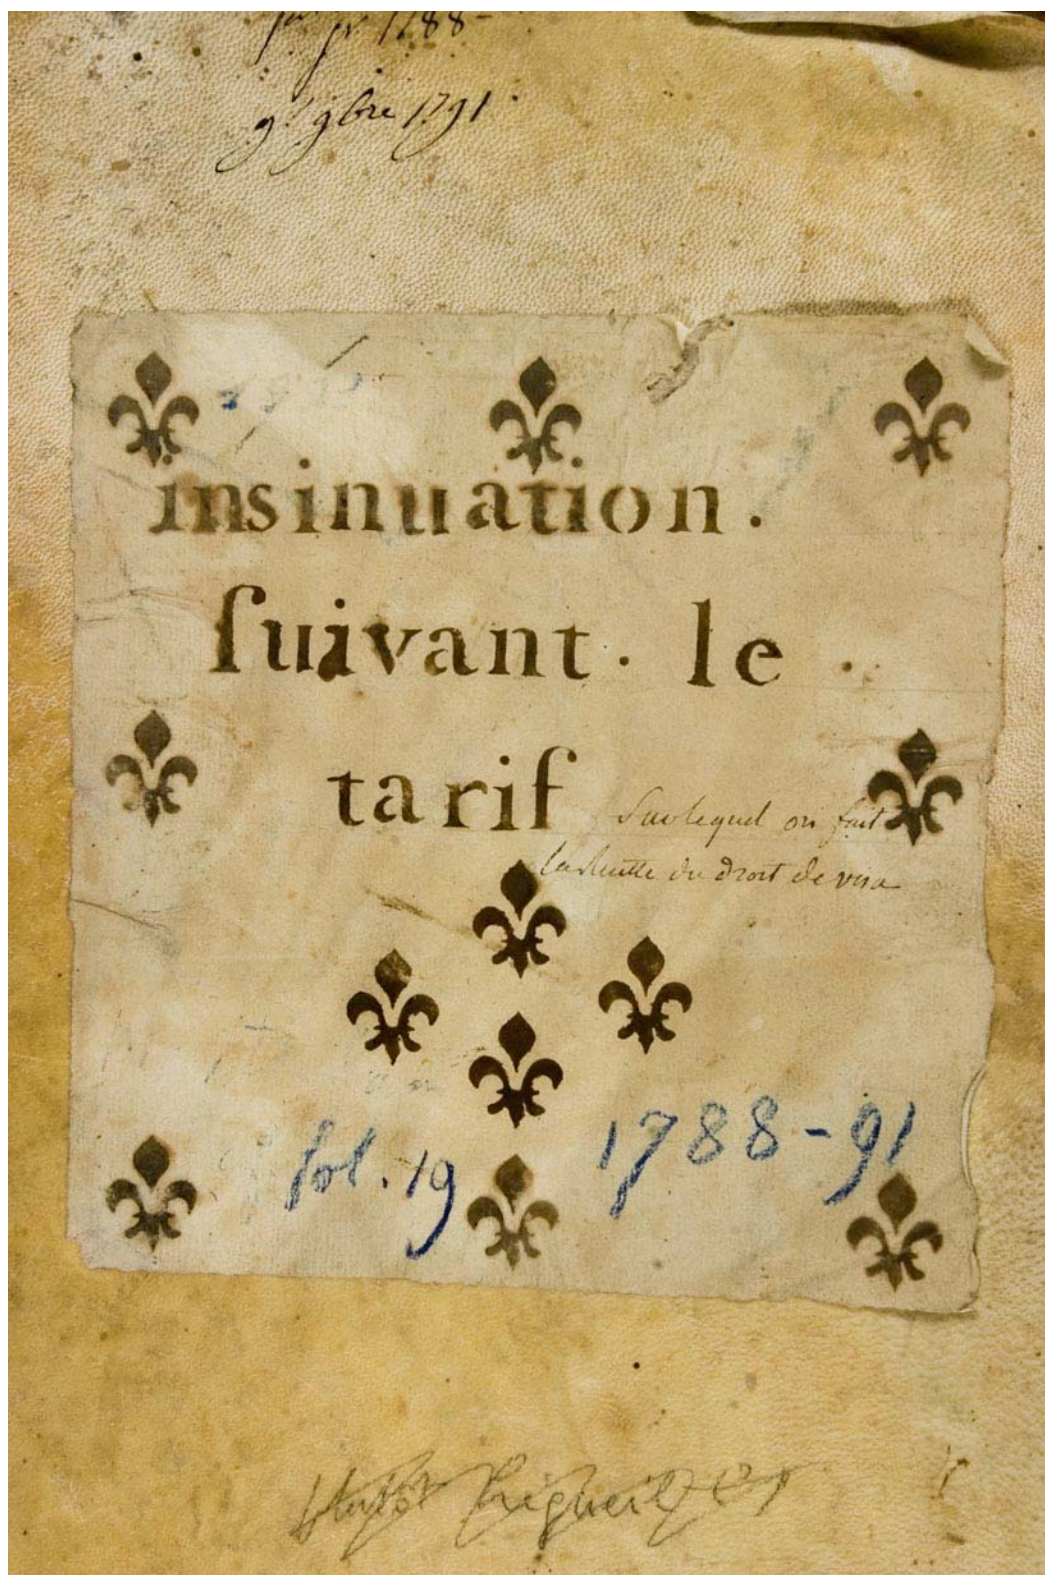 1788
9bre 1791
insinuation.
ſuivant. le
tarif sur lequel on fait
du droit de visa
fol. 19 1788-91